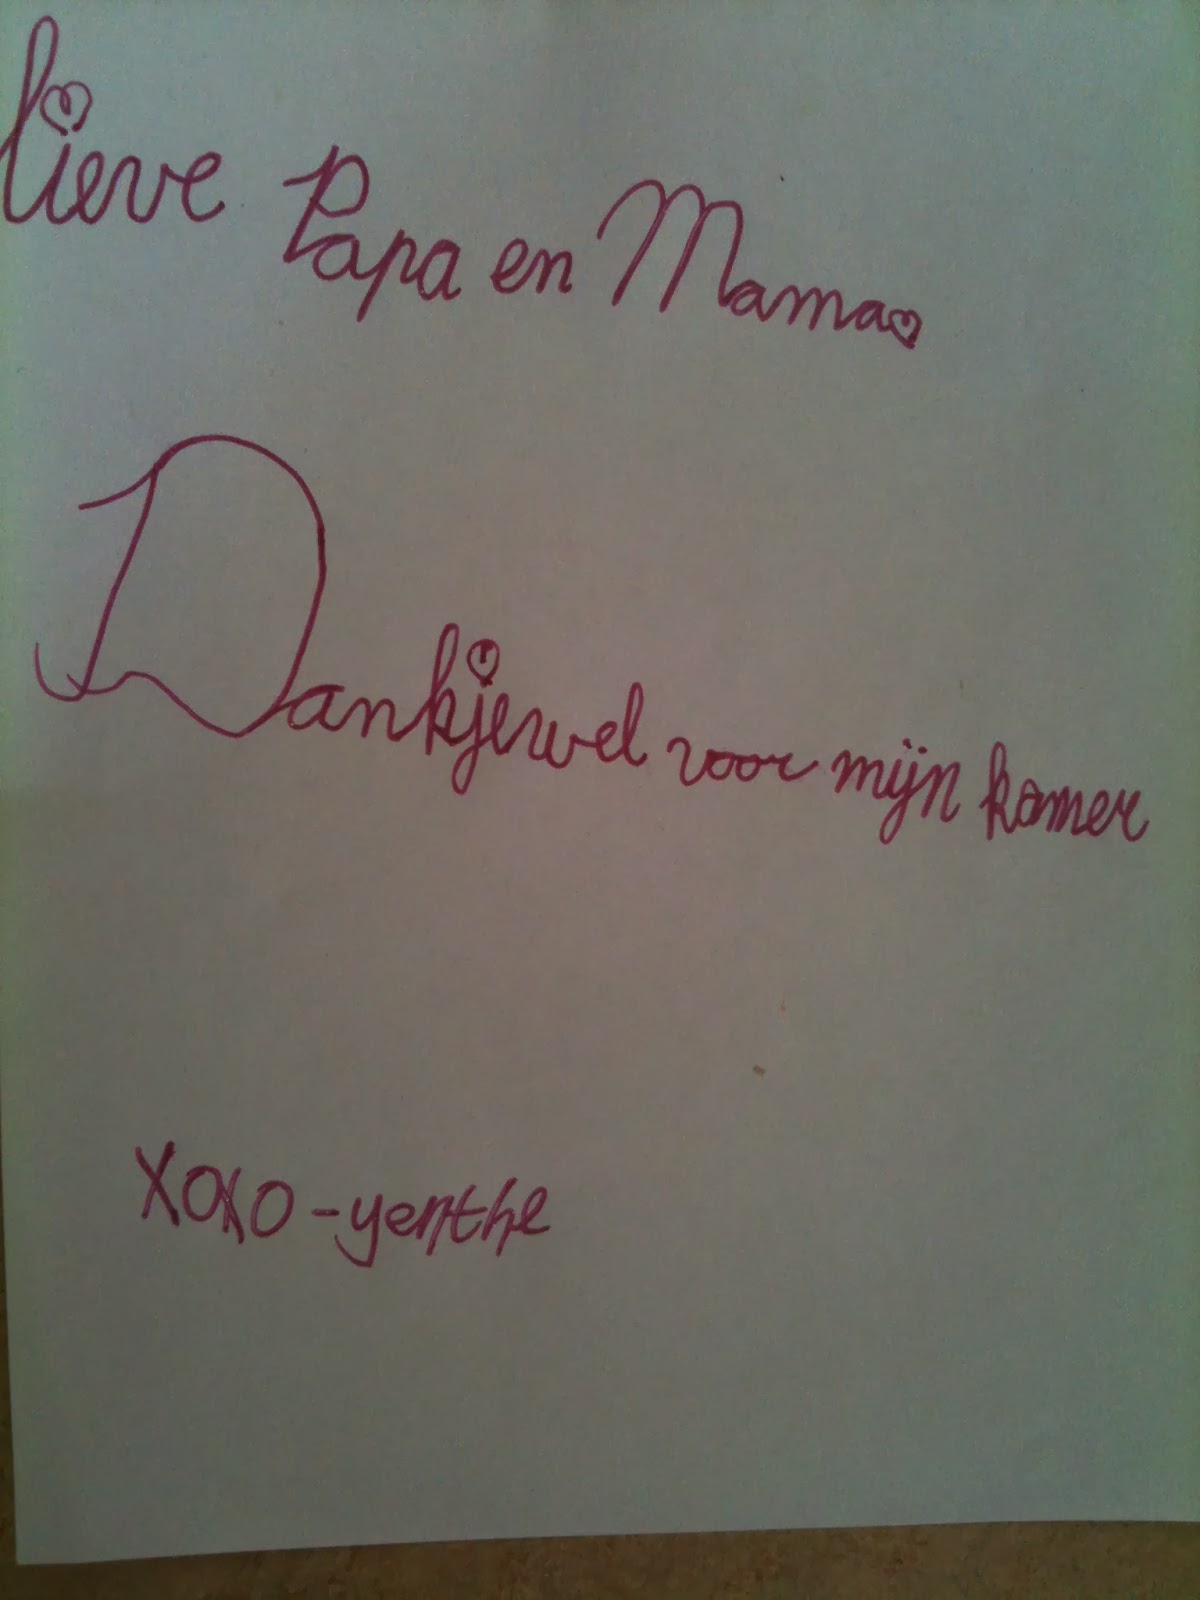 lieve Papa en Mama
Dankjewel voor mijn kamer
XOXO - yenthe